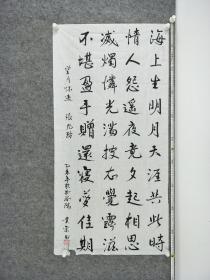 海上生明月天涯共此時
情人怨遥夜竟夕起相思
滅燭憐光滿披衣覺露滋
不堪盈手贈還寝夢佳期
望月怀遠 張九龄